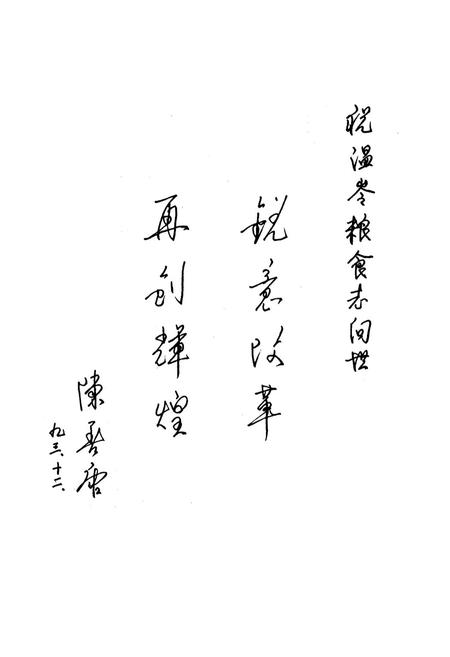 祝温岭粮食志问世
锐意改革
再创輝煌
陳
九三.十二.